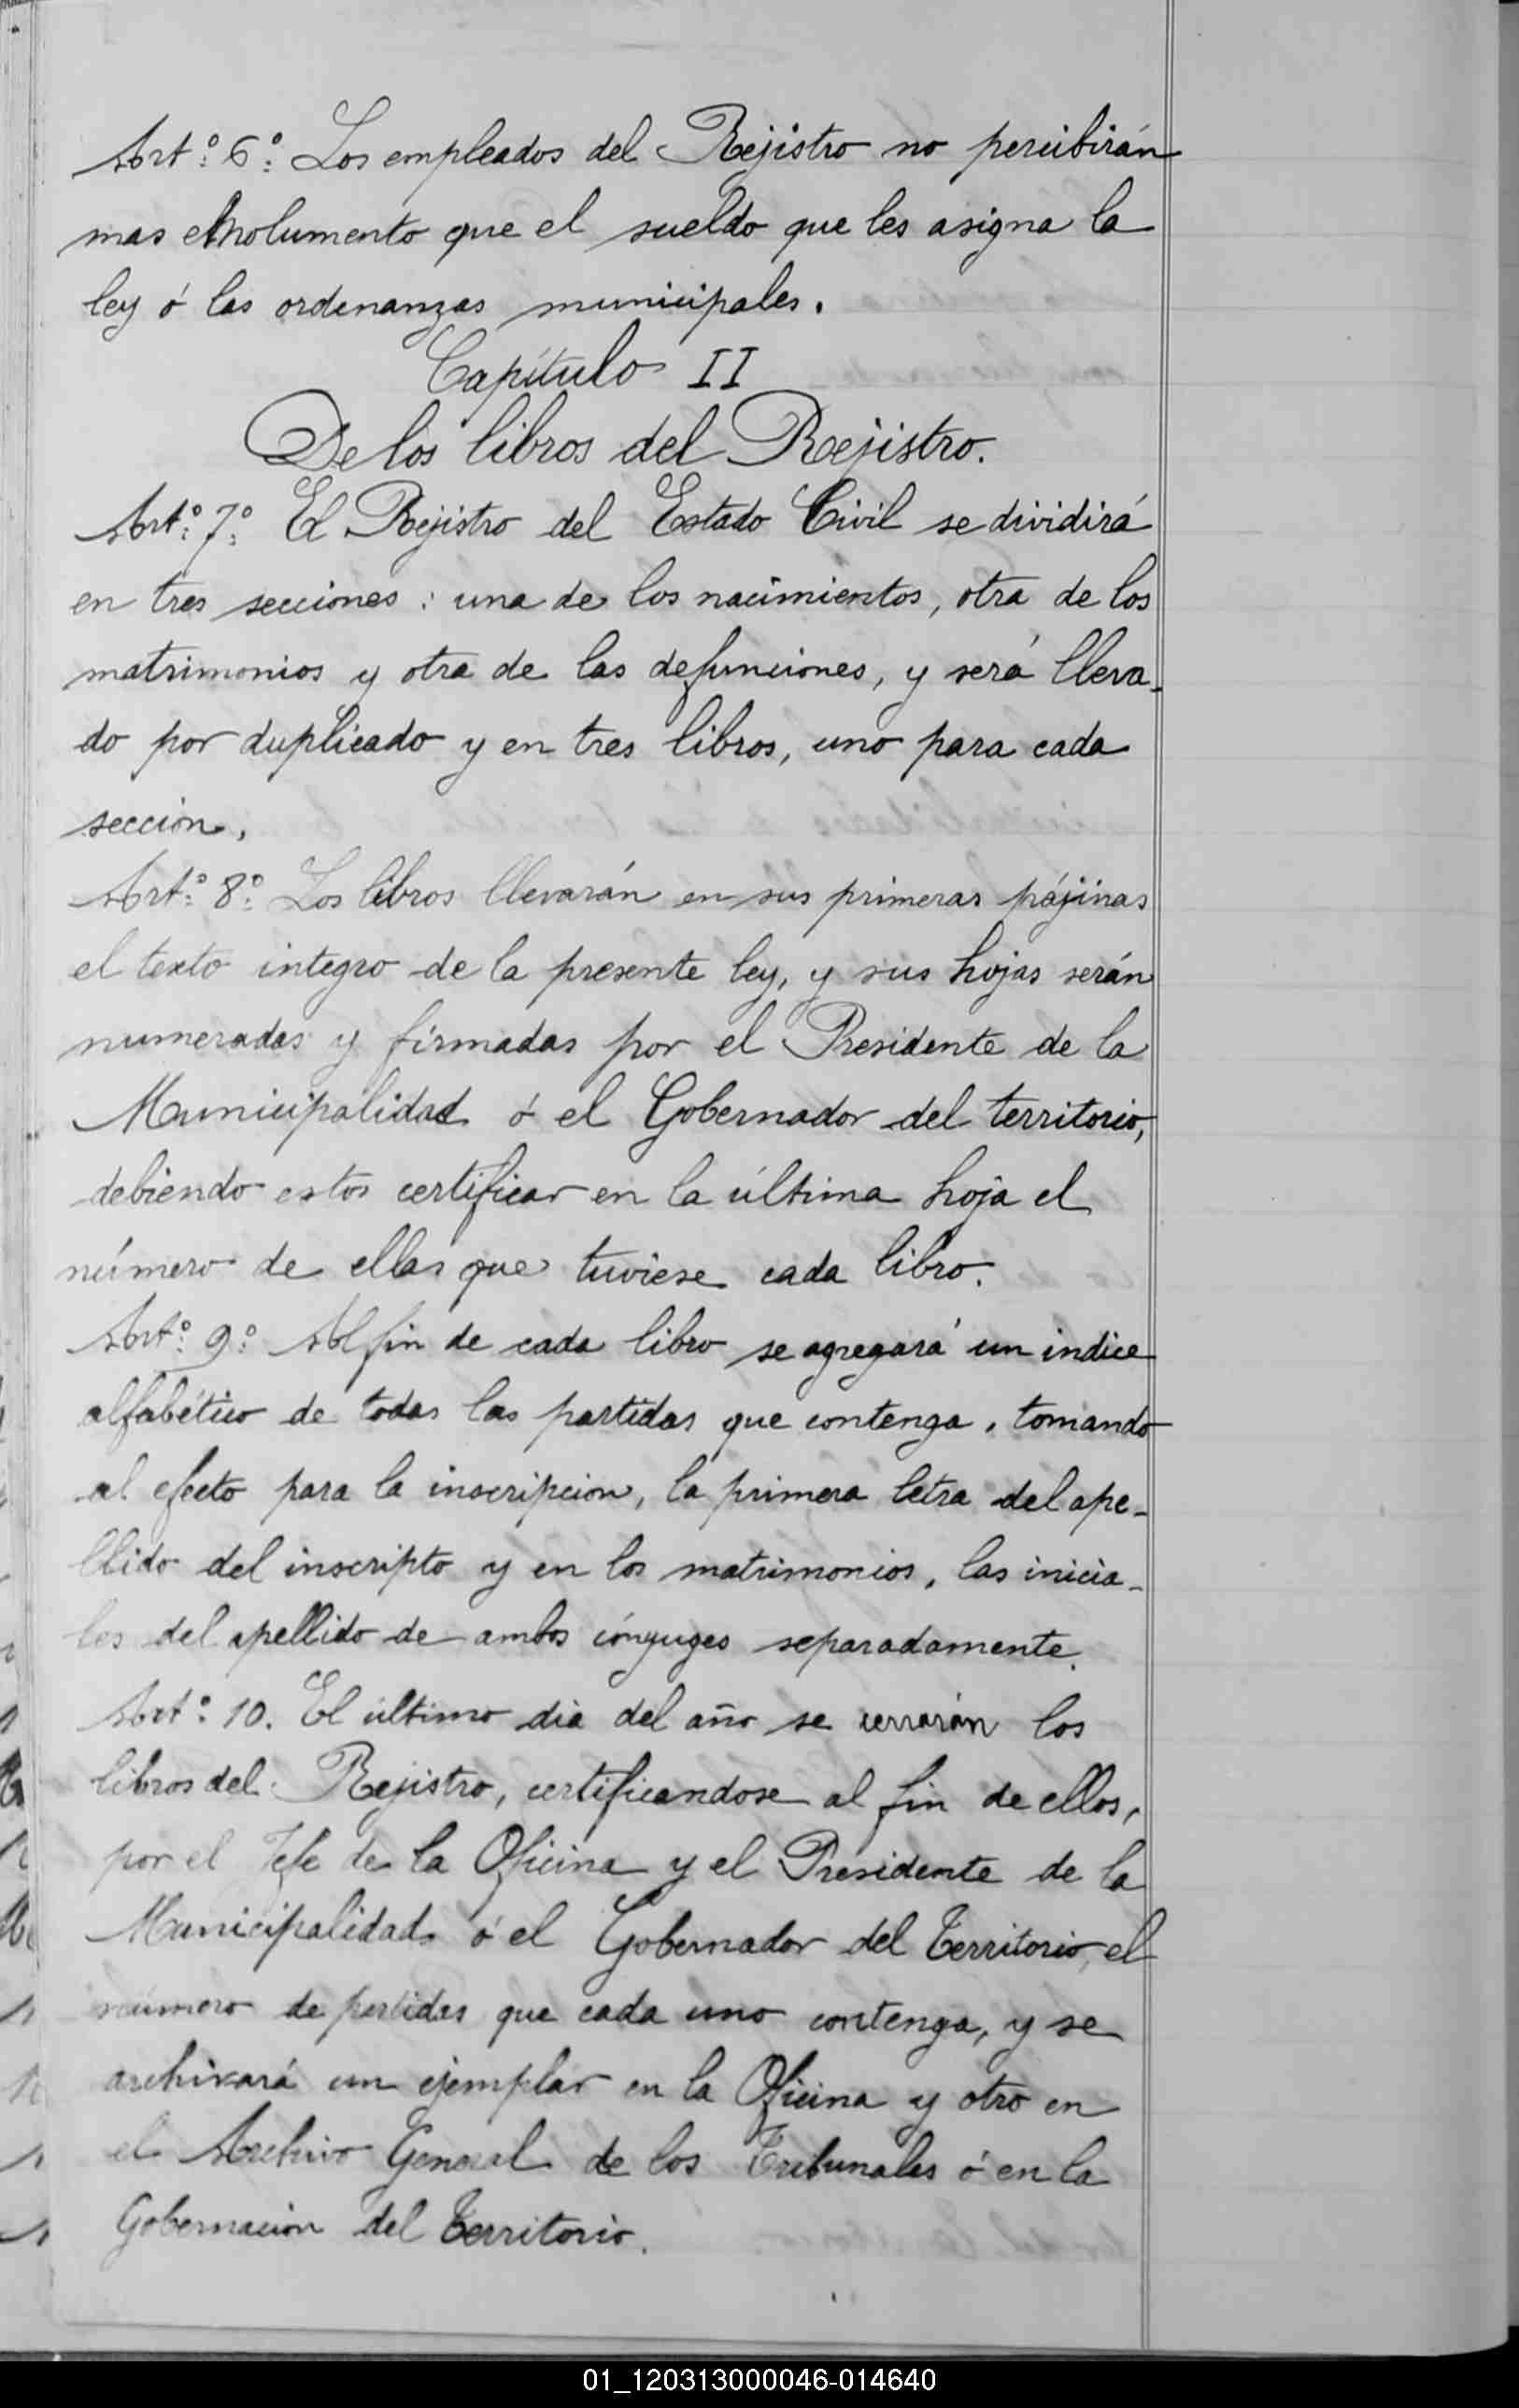 Art.º 6.º Los empleados del Rejistro no percibirán
mas emolumento que el sueldo que les asigna la
ley ó las ordenanzas municipales.
Capítulo II
De los libros del Rejistro.
Art.º 7.º El Rejistro del Estado Civil se dividirá
en tres secciones: una de los nacimientos, otra de los
matrimonios y otra de las defunciones, y será lleva-
do por duplicado y en tres libros, uno para cada
sección.
Art.º 8.º Los libros llevarán en sus primeras pájinas
el texto integro de la presente ley, y sus hojas serán
numeradas y firmadas por el Presidente de la
Municipalidad ó el Gobernador del territorio,
debiendo estos certificar en la última hoja el
número de ellas que tuviese cada libro.
Art.º 9.º Al fin de cada libro se agregará un indice
alfabético de todas las partidas que contenga, tomando
al efecto para la inscripcion, la primera letra del ape-
llido del inscripto y en los matrimonios, las inicia-
les del apellido de ambos cónyuges separadamente.
Art.º 10. El último dia del año se cerrarán los
libros del Rejistro, certificandose al fin de ellos,
por el Jefe de la Oficina y el Presidente de la
Municipalidad ó el Gobernador del Territorio, el
número de partidas que cada uno contenga, y se
archivará un ejemplar en la Oficina y otro en
el Archivo General de los Tribunales ó en la
Gobernacion del Territorio.
01_120313000046-014640